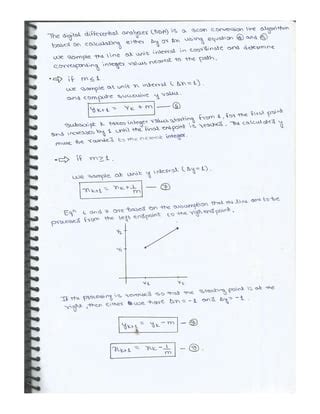 The digital differential analyzer (DDA) is a scan conversion line algorithm
based on calculating either Δy or Δx using equation ④ and ⑤
we sample the line at unit interval in coordinate and determine
corresponding integer values nearest to the path.
⇒ if m ≤ 1
we sample at unit x interval (Δx=1).
and compute successive y value.
yk+1 = yk + m — ⑥
Subscript k takes integer value starting from 1, for the first point
and increases by 1 until the final endpoint is reached. The calculated y
must be rounded to the nearest integer.
⇒ if m ≥ 1.
we sample at unit y interval (Δy=1).
xk+1 = xk + 1/m — ⑦
Eqⁿ 6 and 7 are based on the assumption that the lines are to be
processed from the left endpoint to the right endpoint.
y2
y1
x1
x2
If the processing is reversed so that the starting point is at the
right, then either we have Δx = -1 and Δy = -1.
yk+1 = yk - m — ⑧
xk+1 = xk - 1/m — ⑨